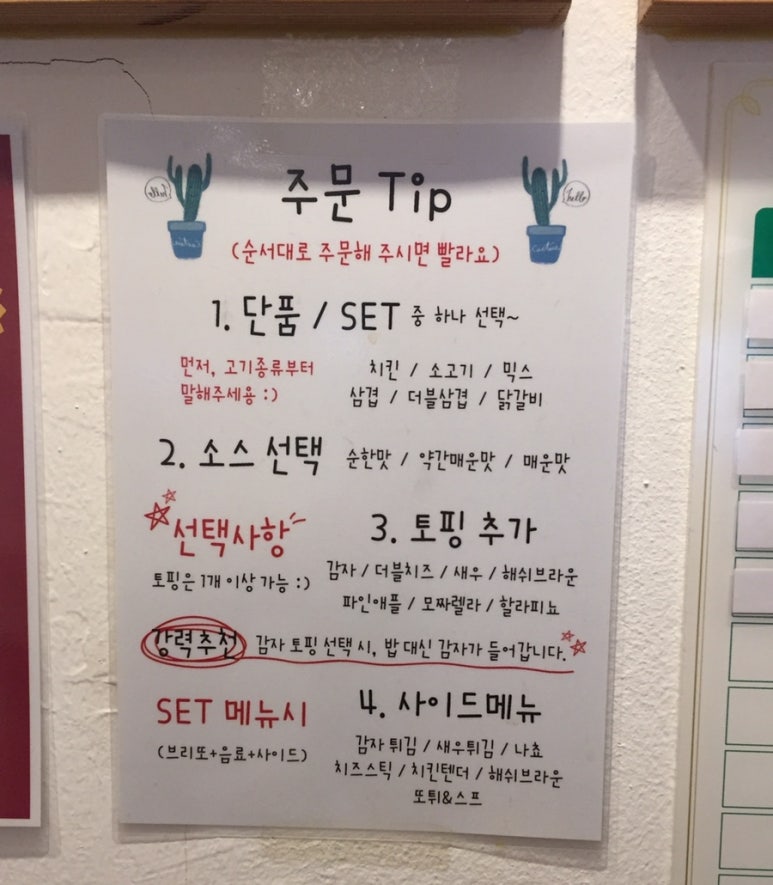 주문 Tip
hello
(순서대로 주문해 주시면 빨라요)
1. 단품 / SET 중 하나 선택~
먼저, 고기종류부터
말해주세용 :)
치킨 / 소고기 / 믹스
삼겹 / 더블삼겹 / 닭갈비
2. 소스 선택 순한맛 / 약간매운맛 / 매운맛
선택사항
토핑은 1개 이상 가능 :)
3. 토핑 추가
감자 / 더블치즈 / 새우 / 해쉬브라운
파인애플 / 모짜렐라 / 할라피뇨
강력추천 감자 토핑 선택 시, 밥 대신 감자가 들어갑니다.
SET 메뉴시
(브리또+음료+사이드)
4. 사이드메뉴
감자 튀김 / 새우튀김 / 나쵸
치즈스틱 / 치킨텐더 / 해쉬브라운
또튀&스프